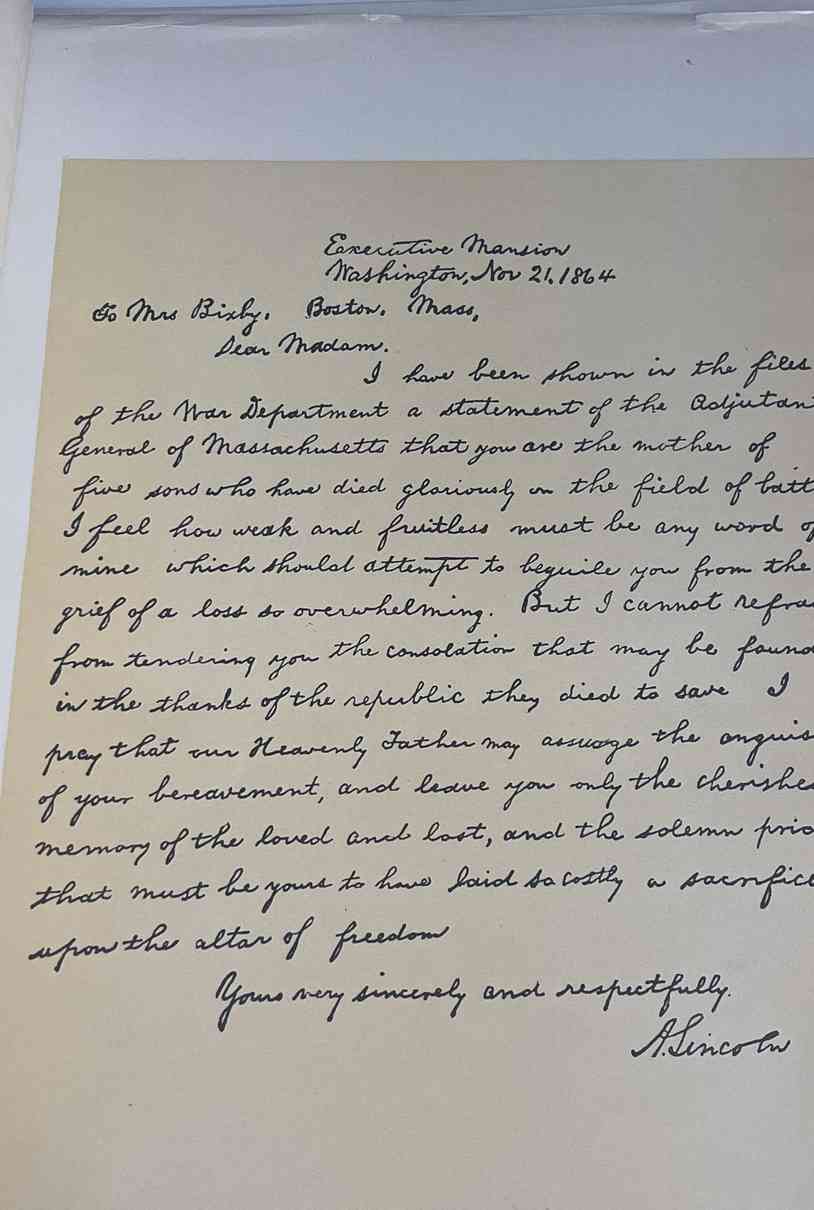 Executive Mansion
Washington, Nov 21, 1864
To Mrs Bixby, Boston, Mass,
Dear Madam.
I have been shown in the files
of the War Department a statement of the Adjutan
General of Massachusetts that you are the mother of
five sons who have died gloriously on the field of batt
I feel how weak and fruitless must be any word of
mine which should attempt to beguile you from the
grief of a loss so overwhelming. But I cannot refra
from tendering you the consolation that may be found
in the thanks of the republic they died to save I
pray that our Heavenly Father may assuage the anguis
of your bereavement, and leave you only the cherishe
memory of the loved and lost, and the solemn prid
that must be yours to have laid so costly a sacrifice
upon the altar of freedom
Yours very sincerely and respectfully.
A. Lincoln